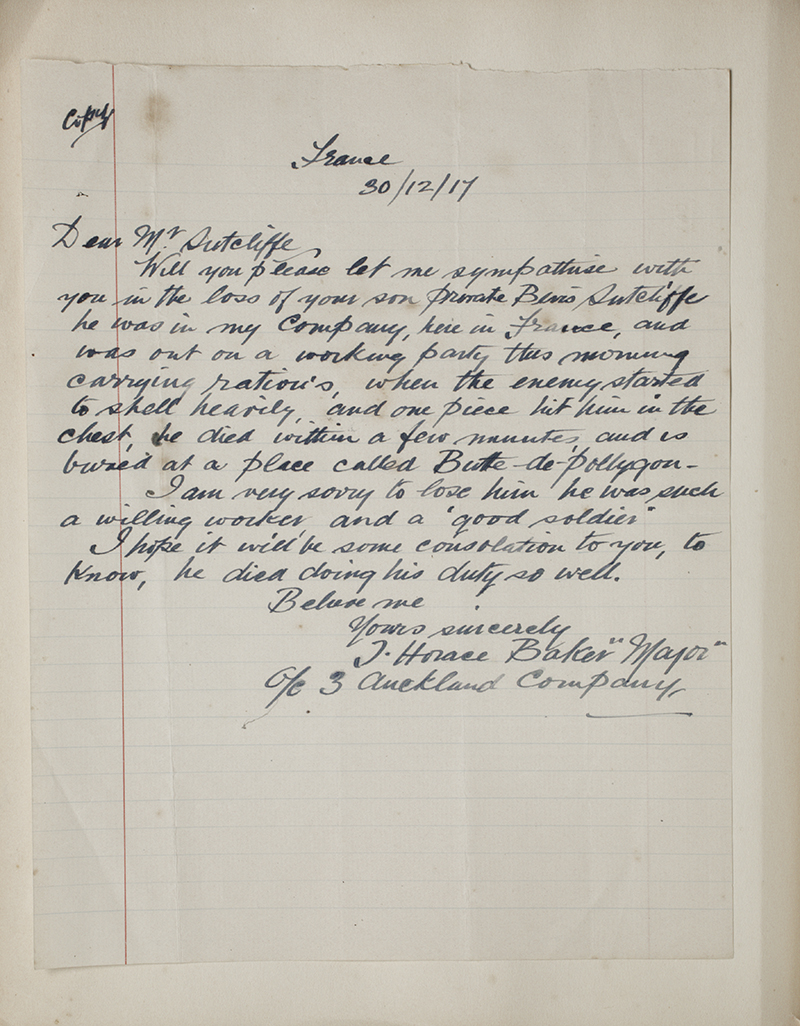 Copy
France
30/12/17
Dear Mr Sutcliffe
Will you please let me sympathise with
you in the loss of your son Private Bevis Sutcliffe
he was in my Company, here in France, and
was out on a working party this morning
carrying ration's, when the enemy started
to shell heavily, and one piece hit him in the
chest, he died within a few minutes, and is
buried at a place called Butte-de-pollygon-
I am very sorry to lose him he was such
a willing worker and a "good soldier"
I hope it will be some consolation to you, to
know, he died doing his duty so well.
Believe me
Yours sincerely
J. Horace Baker "Major"
O/c 3 Auckland Company